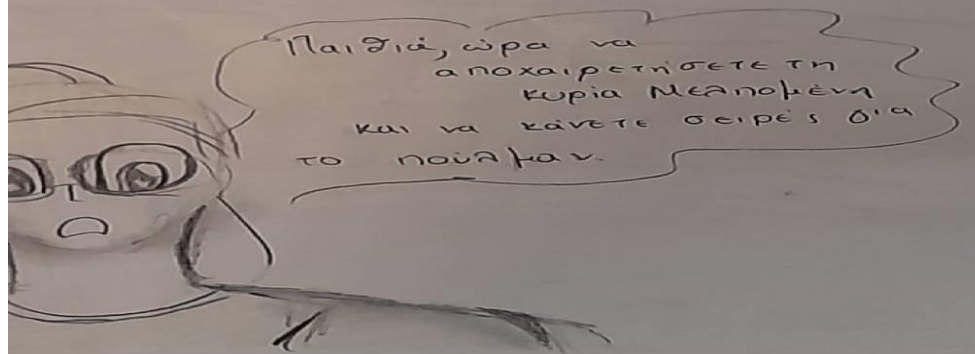 Παιδιά, ώρα να
αποχαιρετήσετε τη
κυρία Μελπομένη
και να κάνετε σειρές για
το πούλμαν.